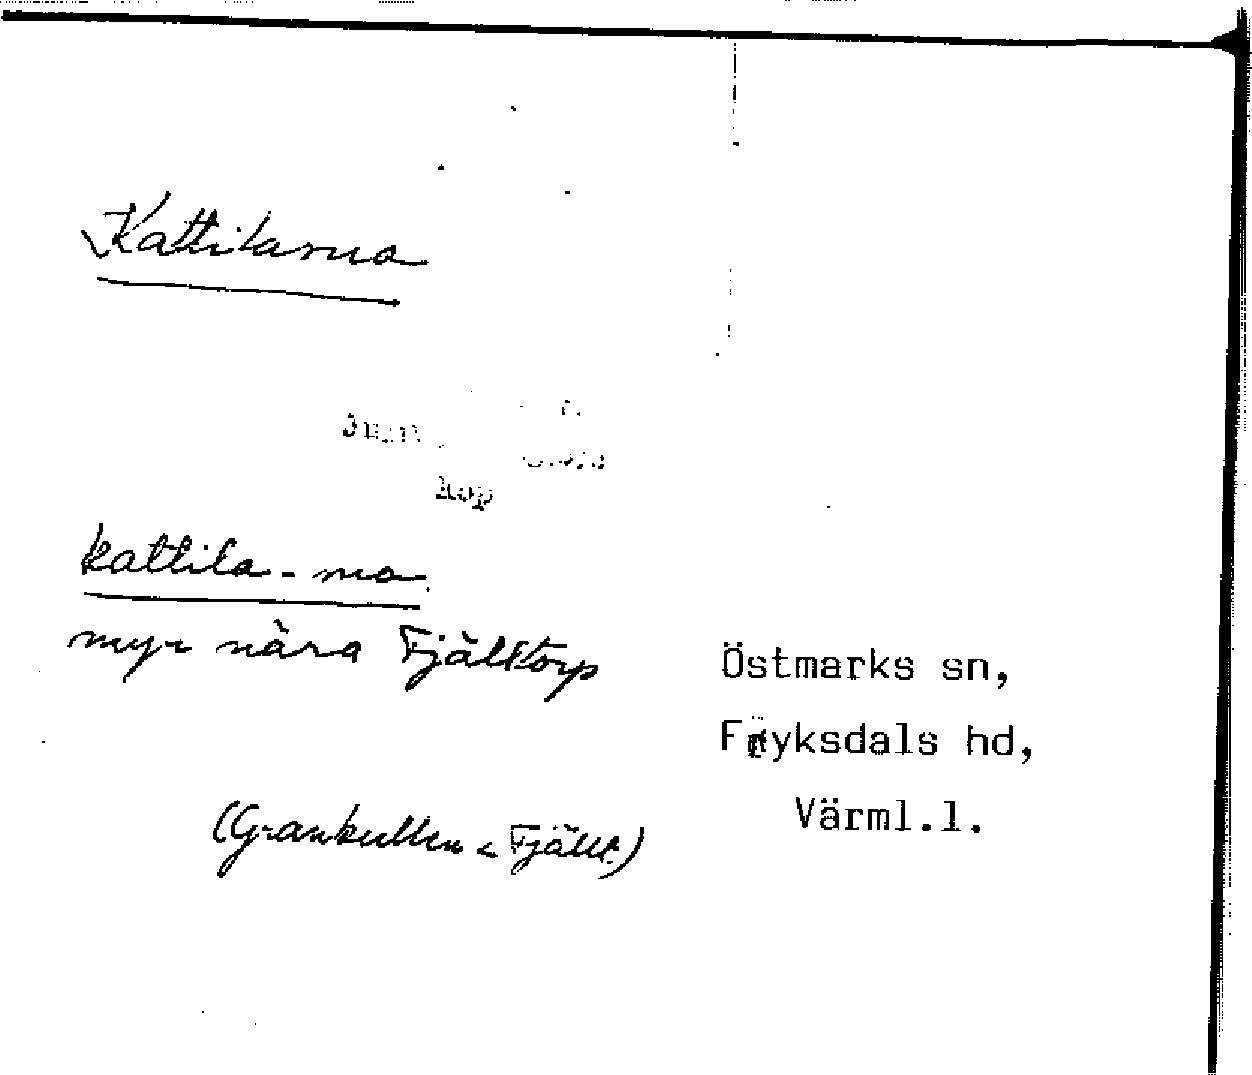 Kattilasuo
kattila-suo
myr nära Fjälltorp
Östmarks sn,
Fryksdals hd,
Värml.l.
(Grankullen < Fjällt.)